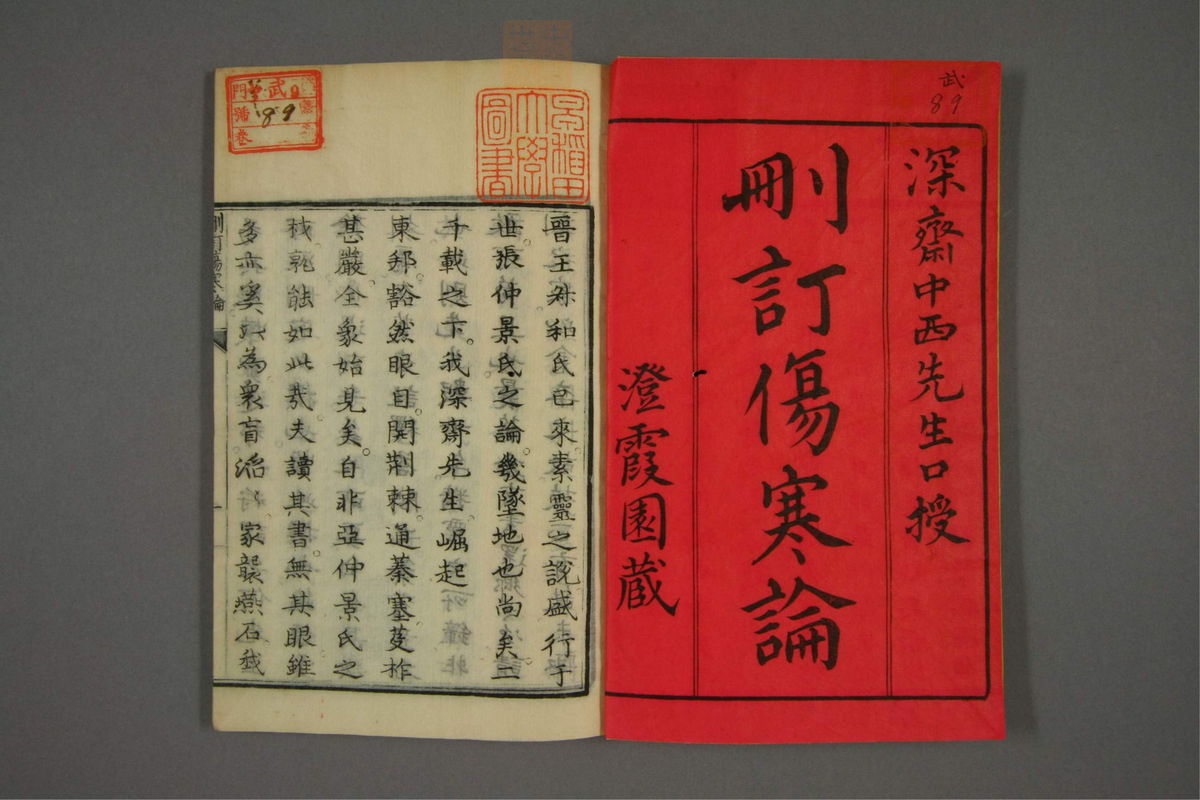 武
89
深齋中西先生口授
刪訂傷寒論
澄霞園蔵
早稻田
大學
圖書
武
門
號
卷
89
晉王叔和氏已來素靈之說盛行于
世張仲景氏之論幾墜地也尚矣二
千載之下我深齋先生崛起
東邦豁然眼目開荆棘通蓁塞芟柞
甚嚴全象始見矣自非亞仲景氏之
孰能如此哉夫讀其書無其眼雖
多亦奚以為衆盲滔滔家襲燕石
刪訂傷寒論